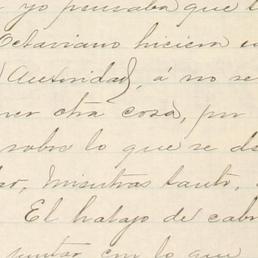 yo pensaba que l
Octaviano hiciera
Autoridad, á no se
otra cosa, por
sobre lo que se de
Mientras tanto,
El hatajo de cabr
juntar con lo que